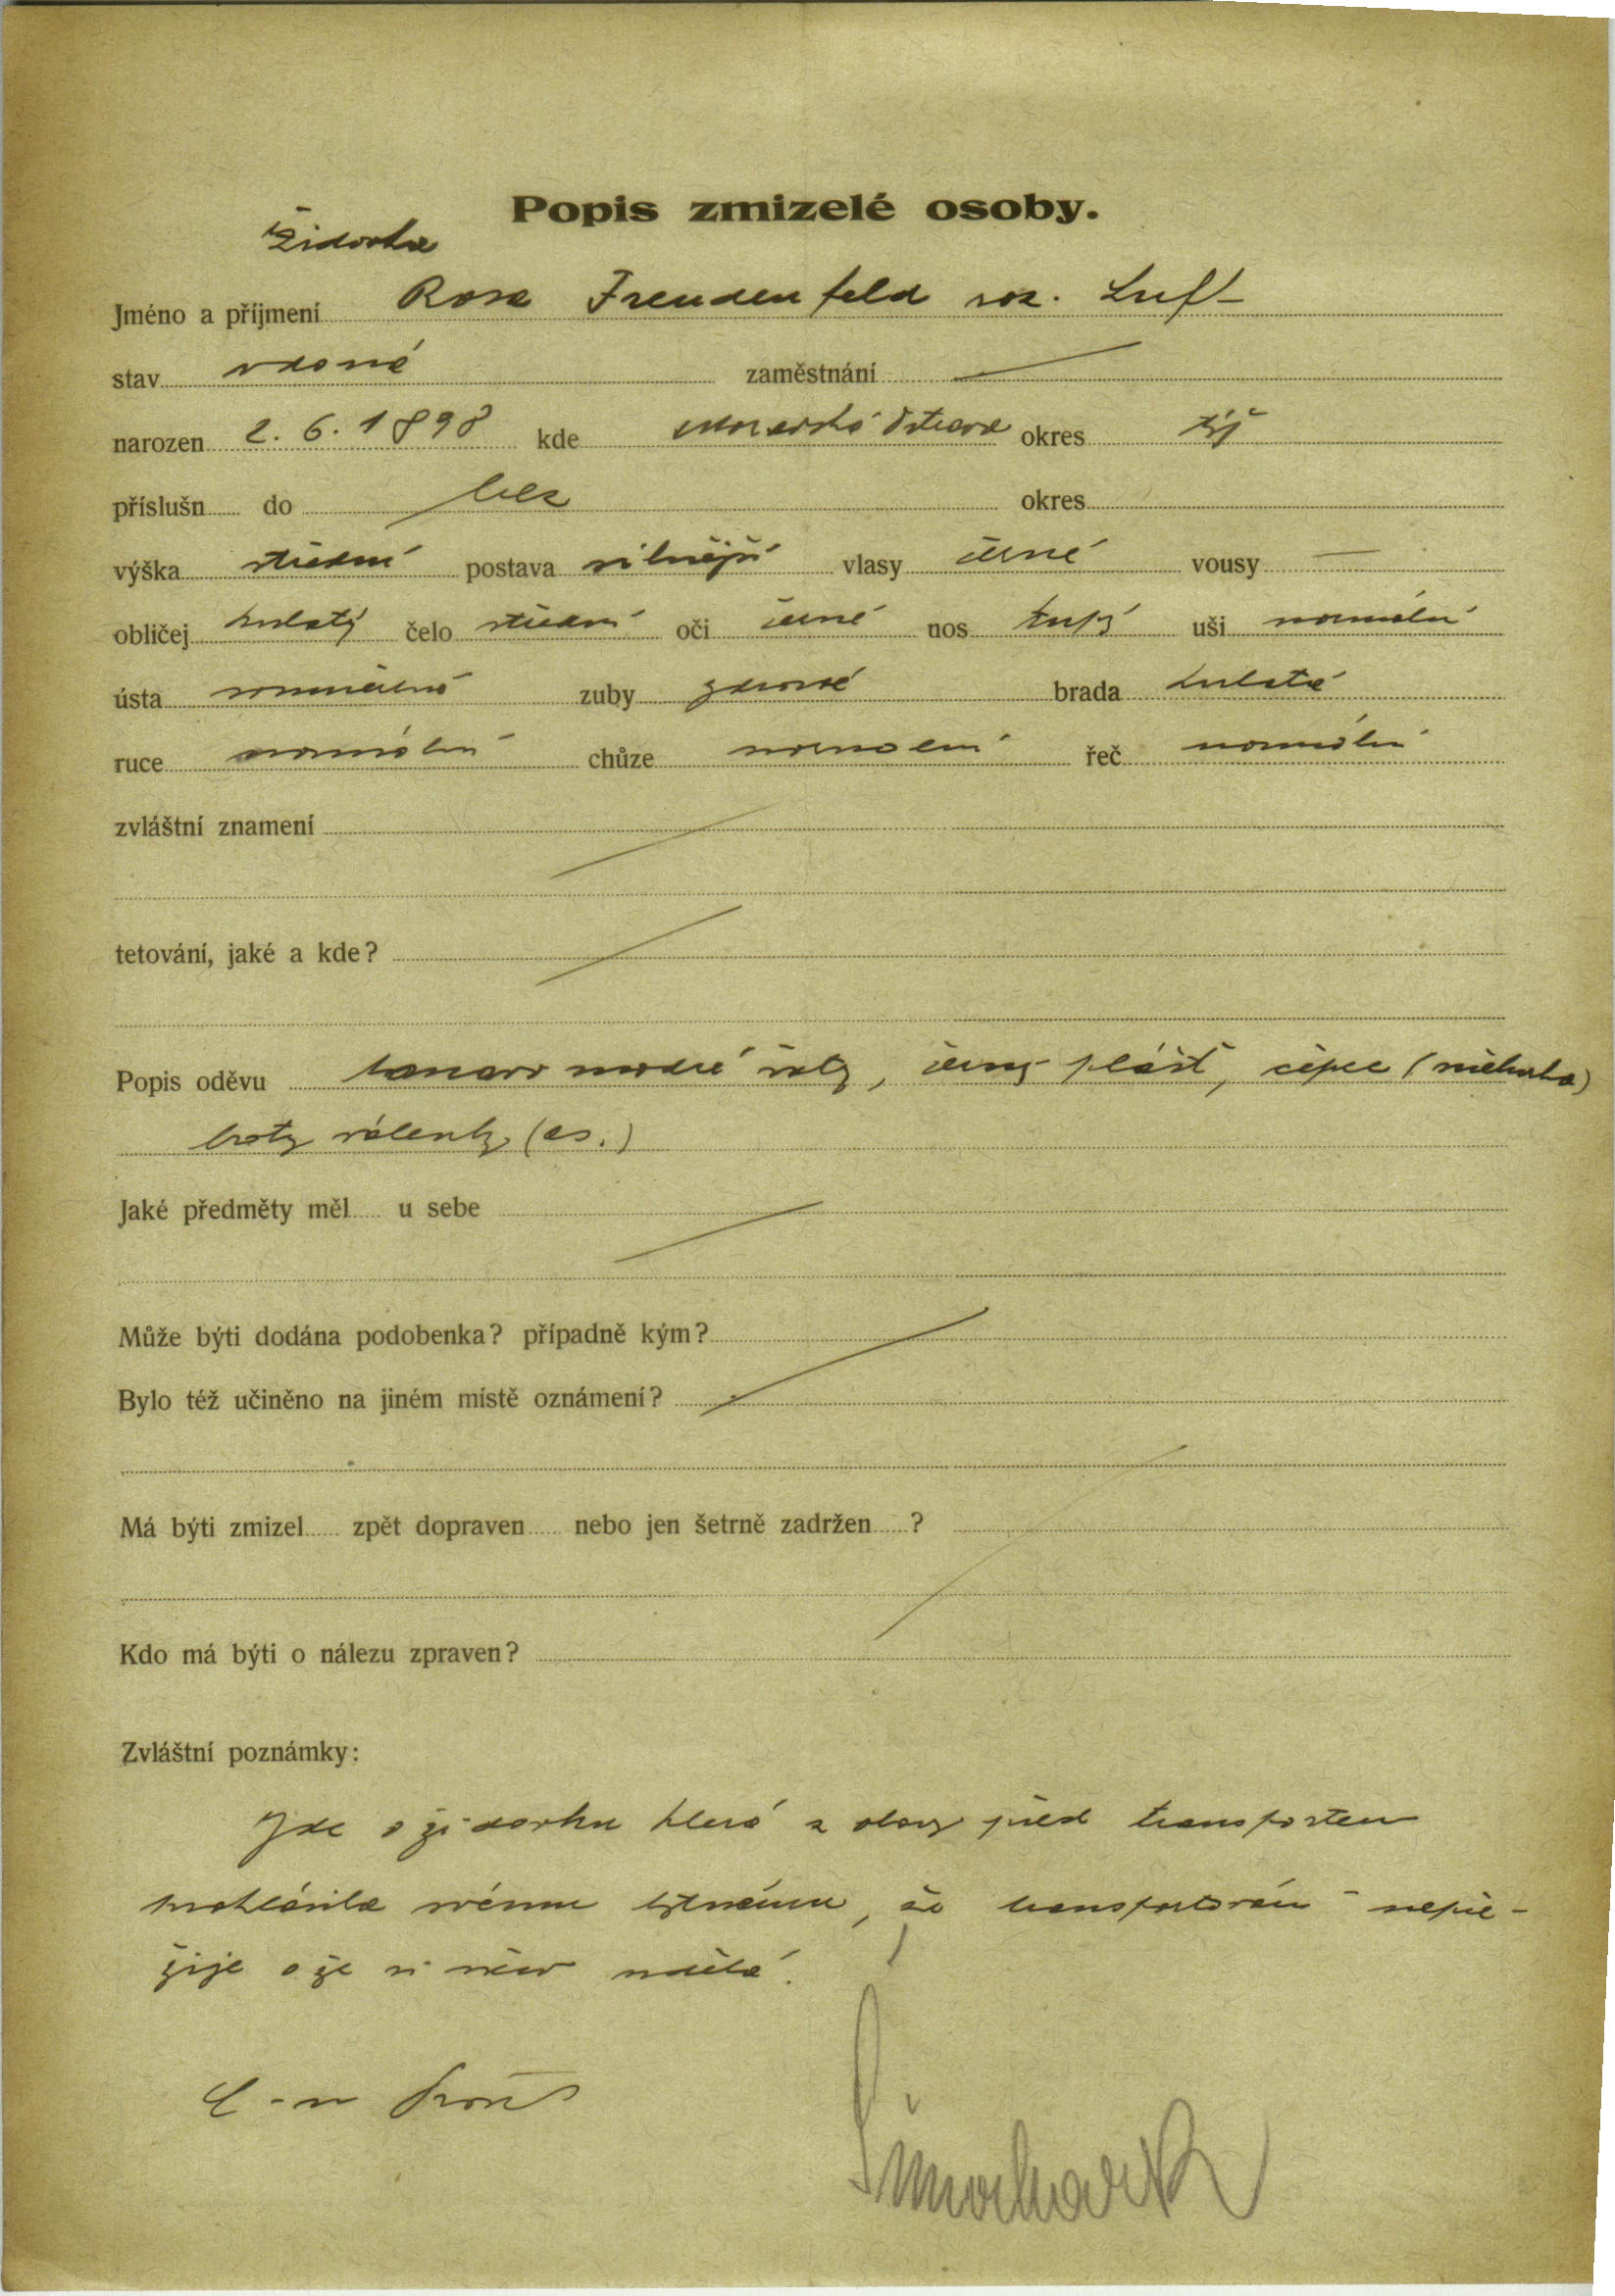 Popis zmizelé osoby.
Židovka
Jméno a příjmení Rosa Freudenfeld roz. Luft
stav vdova zaměstnání
narozen 2. 6. 1898 kde Moravská Ostrava okres týž
příslušn do bez okres
výška střední postava silnější vlasy černé vousy —
obličej kulatý čelo střední oči černé nos tupý uši normální
ústa normální zuby zdravé brada kulatá
ruce normální chůze normální řeč normální
zvláštní znamení
tetování, jaké a kde?
Popis oděvu tmavo modré šaty, černý plášť, čepec
boty válenky
Jaké předměty měl u sebe
Může býti dodána podobenka? případně kým?
Bylo též učiněno na jiném místě oznámení?
Má býti zmizel zpět dopraven nebo jen šetrně zadržen ?
Kdo má býti o nálezu zpraven?
Zvláštní poznámky:
Jde o židovku která z obavy před transportem
prohlásila svému bytnému, že transportování nepře-
žije a že si něco udělá.